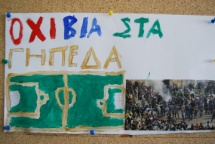 ΟΧΙ ΒΙΑ ΣΤΑ
ΓΗΠΕΔΑ